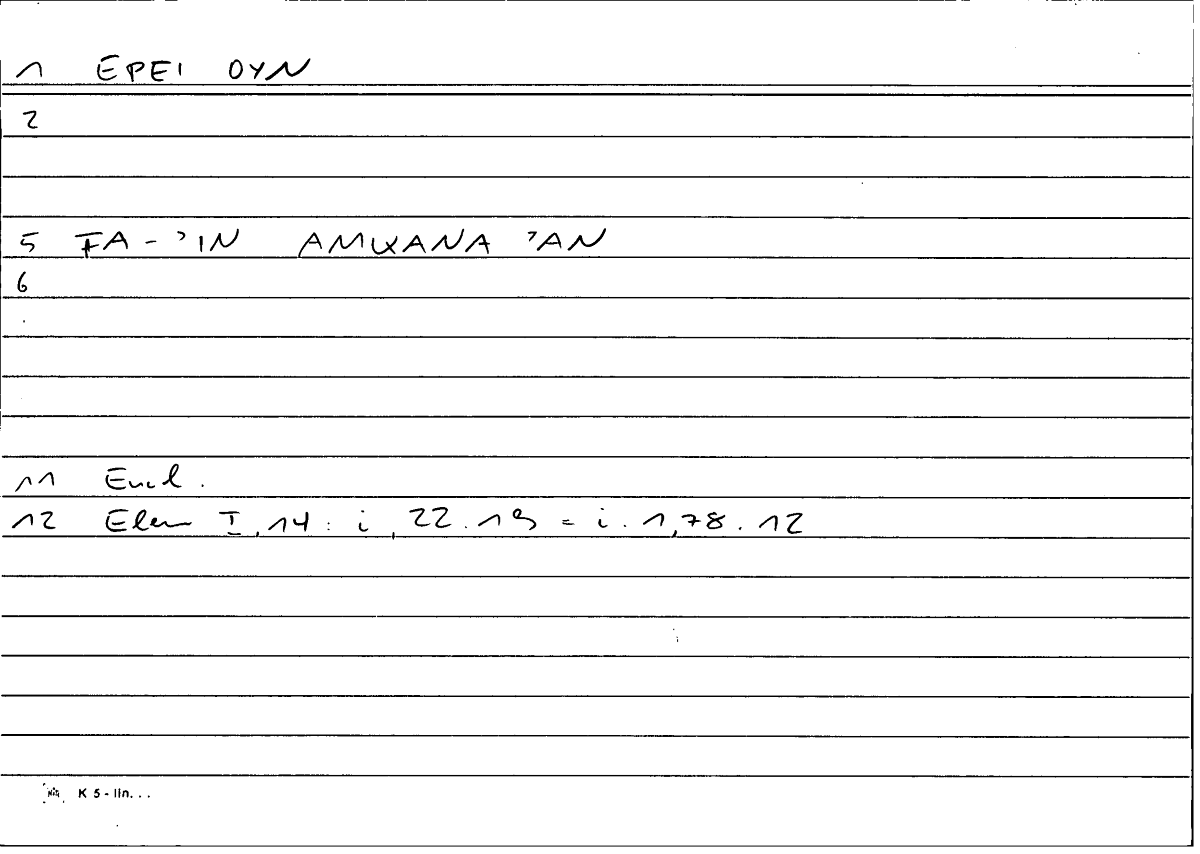 1 EPEI OYN
2
5 FA-'IN AMKANA 'AN
6
11 Eucl.
12 Elem I,14: i,22.19 = i.1,78.12
K 5 - lin...